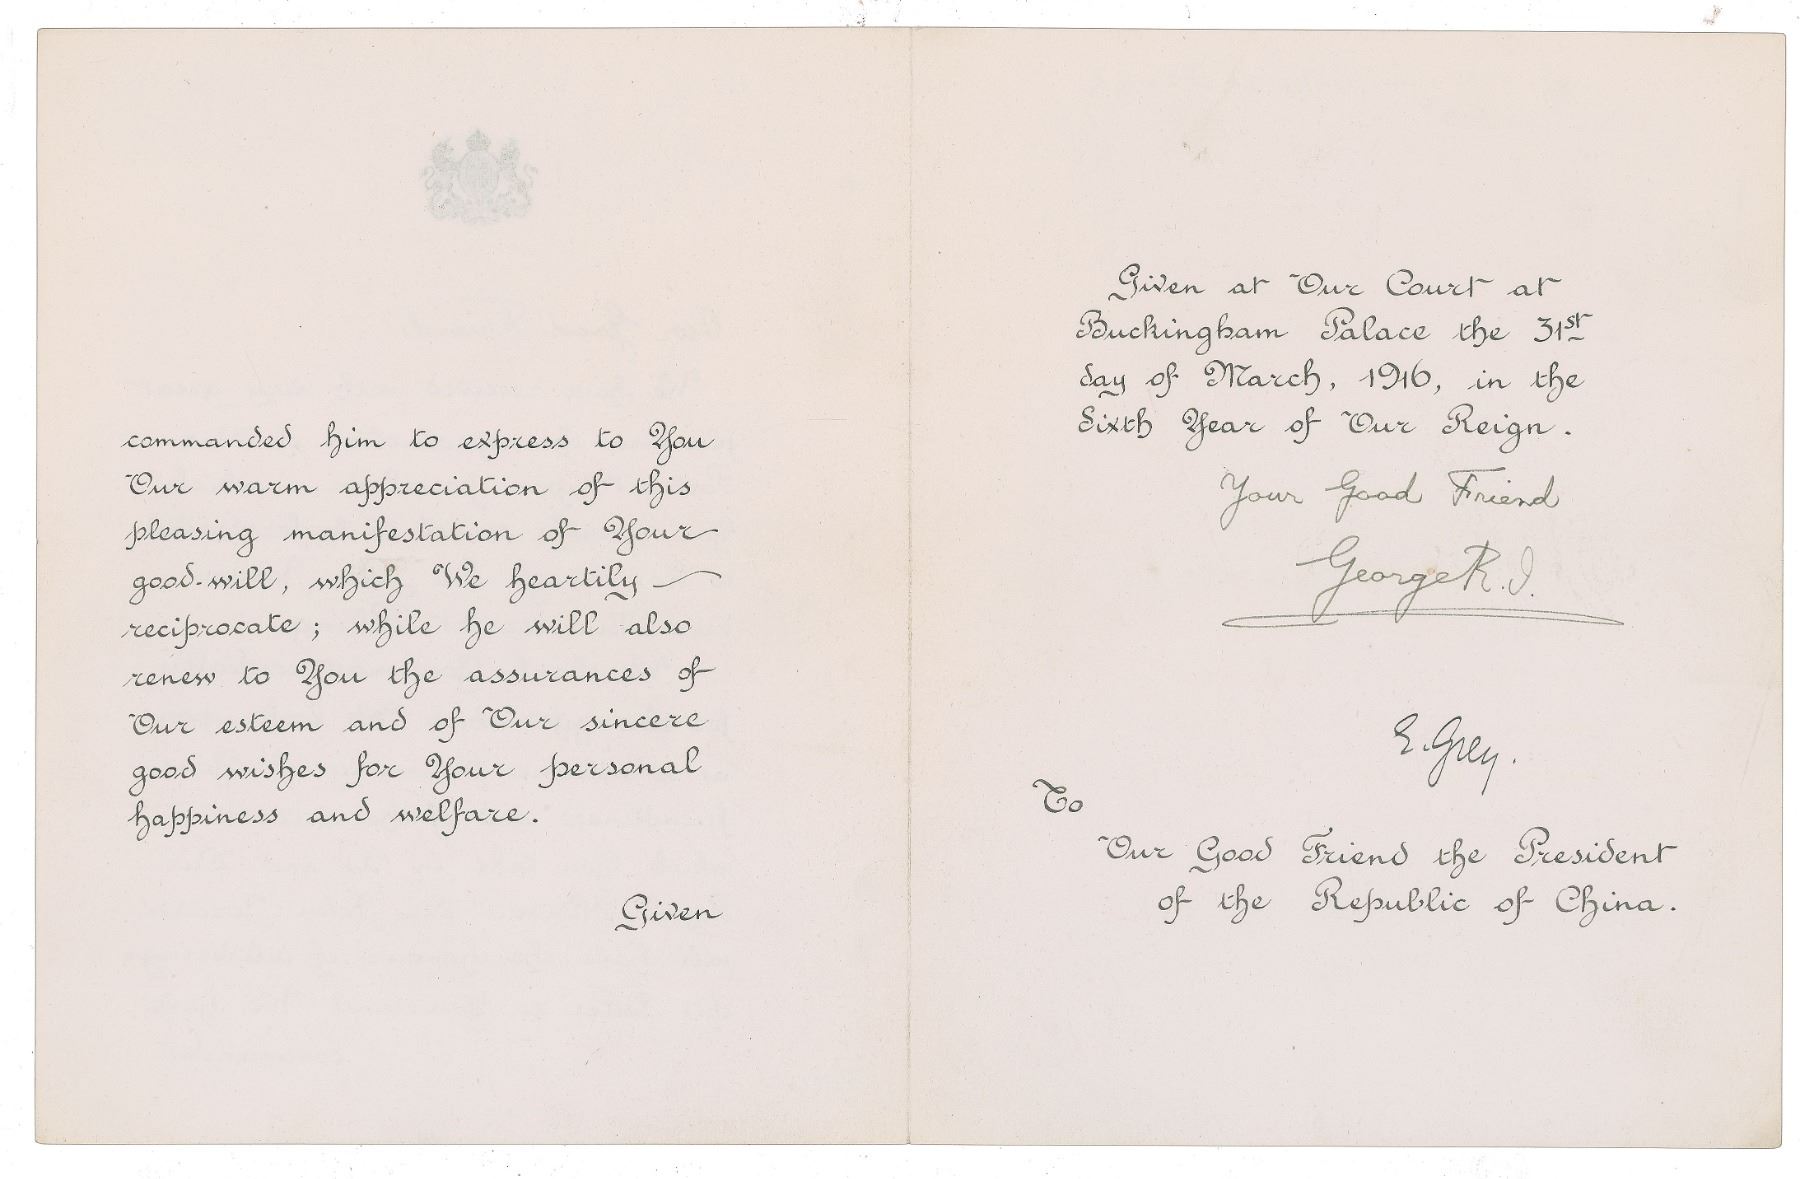 commanded him to express to You
Our warm appreciation of this
pleasing manifestation of Your
good-will, which We heartily
reciprocate; while he will also
renew to You the assurances of
Our esteem and of Our sincere
good wishes for Your personal
happiness and welfare.
Given
Given at Our Court at
Buckingham Palace the 31st
day of March, 1916, in the
Sixth Year of Our Reign.
Your Good Friend
George R. I.
E. Grey.
To
Our Good Friend the President
of the Republic of China.